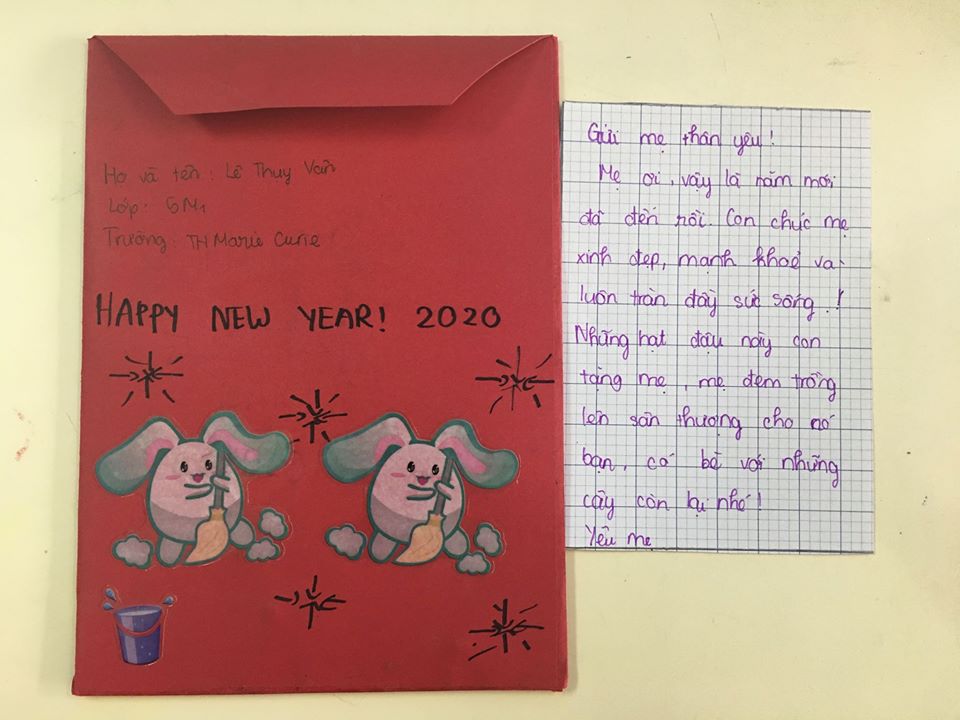 Họ và tên : Lê Thụy Vân
Lớp : 5M1
Trường : TH Marie Curie
HAPPY NEW YEAR! 2020
Gửi mẹ thân yêu !
Mẹ ơi, vậy là năm mới
đã đến rồi. Con chúc mẹ
xinh đẹp, mạnh khoẻ và
luôn tràn đầy sức sống !
Những hạt đậu này con
tặng mẹ, mẹ đem trồng
lên sân thượng cho nó
bạn, có bè với những
cây còn lại nhé !
Yêu mẹ